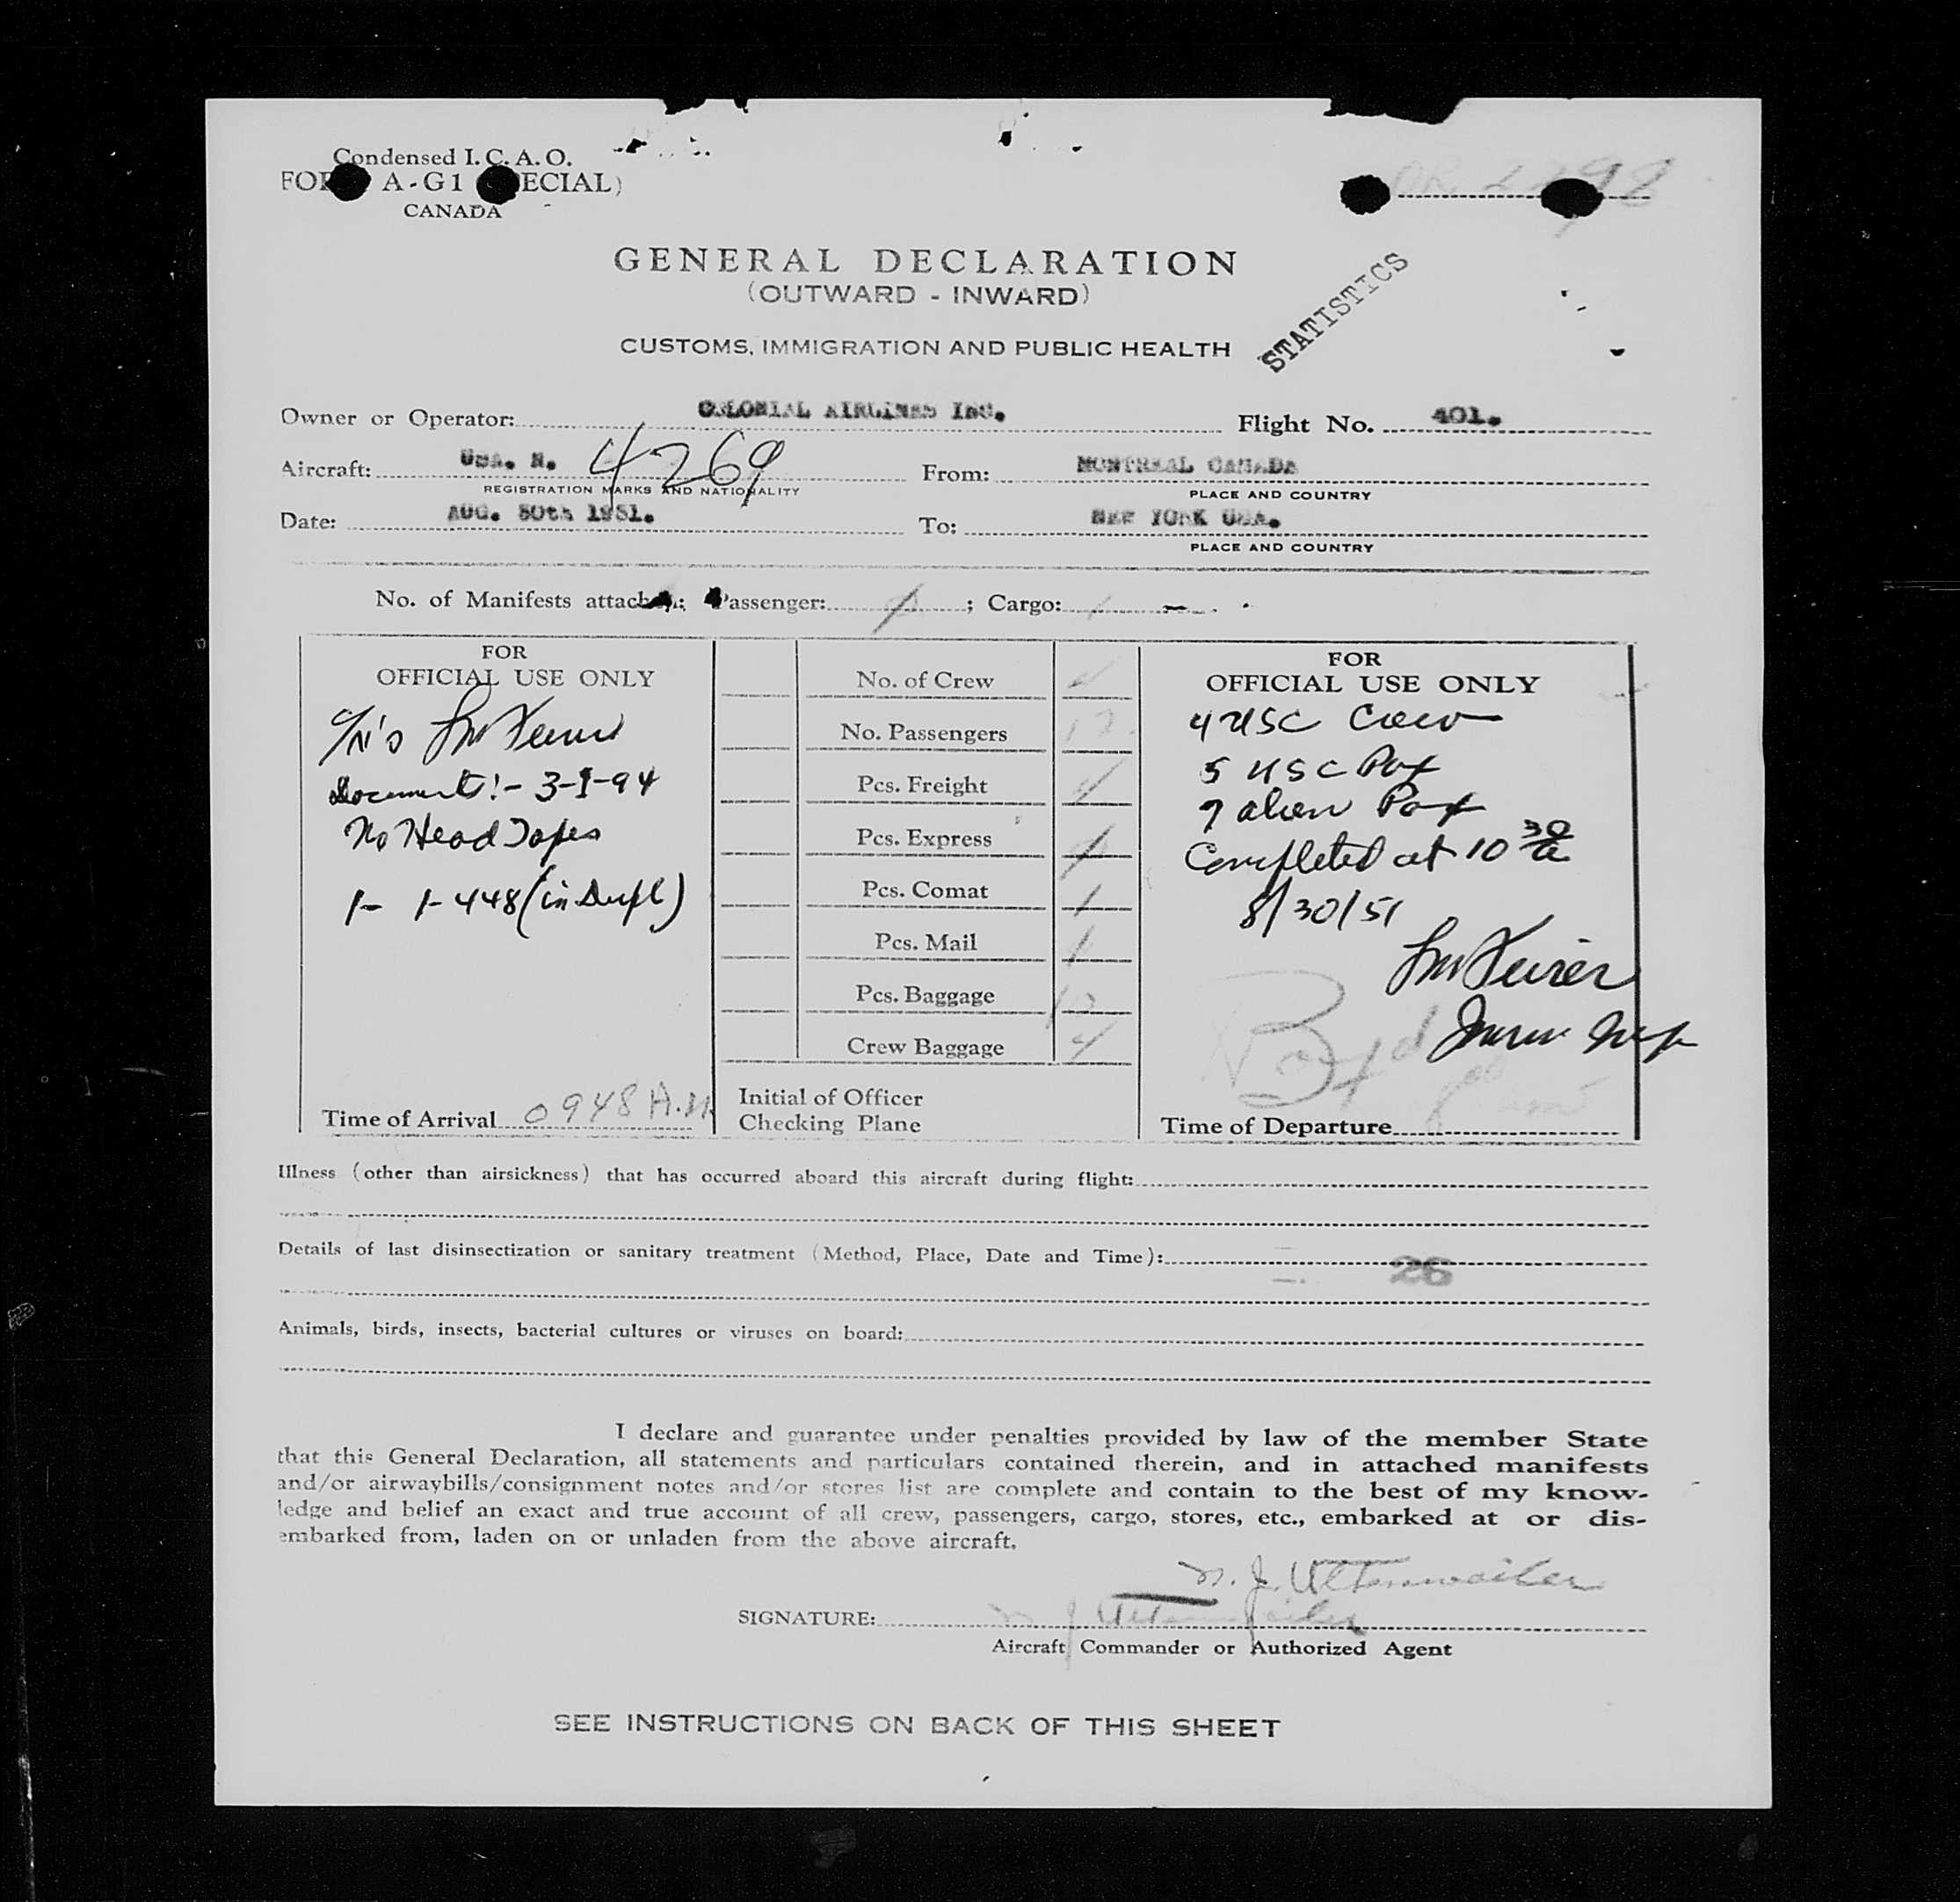 Condensed I. C. A. O.
A-G1 ECIAL)
CANADA
GENERAL DECLARATION
(OUTWARD - INWARD)
STATISTICS
CUSTOMS, IMMIGRATION AND PUBLIC HEALTH
Owner or Operator: COLONIAL AIRLINES INC. Flight No. 401.
Aircraft: USA. N. 4269 From: MONTREAL CANADA
REGISTRATION MARKS AND NATIONALITY PLACE AND COUNTRY
Date: AUG. 30th 1951. To: NEW YORK USA.
PLACE AND COUNTRY
No. of Manifests Passenger: 1 ; Cargo: 1
FOR
OFFICIAL USE ONLY
Documents:- 3-I-94
No Head Taxes
1- I-448 (in Dupl)
Time of Arrival 0948 A.M.
No. of Crew
No. Passengers 12
Pcs. Freight
Pcs. Express
Pcs. Comat 1
Pcs. Mail 1
Pcs. Baggage
Crew Baggage 4
Initial of Officer
Checking Plane
FOR
OFFICIAL USE ONLY
4 USC Crew
5 USC Pax
7 alien Pax
Completed at 10 30 a
8/30/51
Boyd
Time of Departure
Illness (other than airsickness) that has occurred aboard this aircraft during flight:
Details of last disinsectization or sanitary treatment (Method, Place, Date and Time):
26
Animals, birds, insects, bacterial cultures or viruses on board:
I declare and guarantee under penalties provided by law of the member State
that this General Declaration, all statements and particulars contained therein, and in attached manifests
and/or airwaybills/consignment notes and/or stores list are complete and contain to the best of my know-
ledge and belief an exact and true account of all crew, passengers, cargo, stores, etc., embarked at or dis-
embarked from, laden on or unladen from the above aircraft.
SIGNATURE:
Aircraft Commander or Authorized Agent
SEE INSTRUCTIONS ON BACK OF THIS SHEET